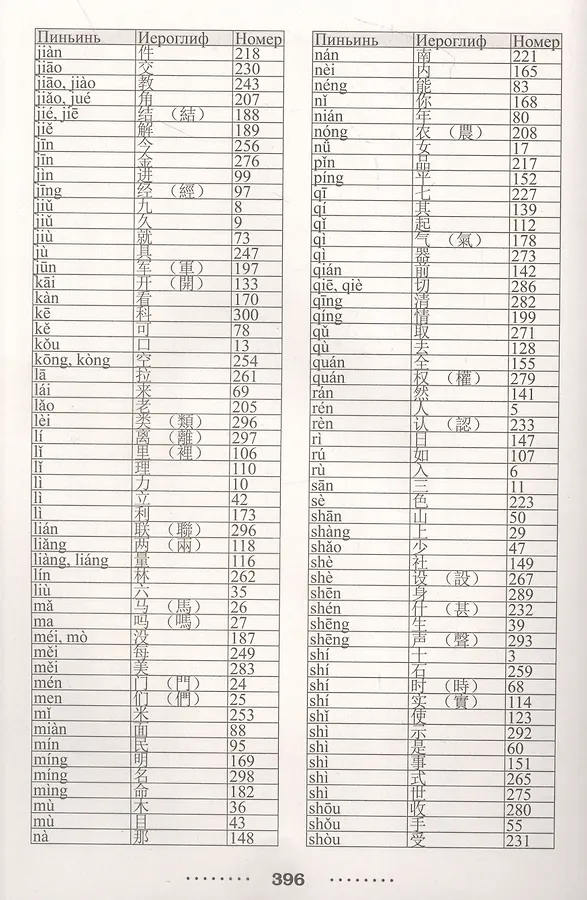 Пиньинь Иероглиф Номер
jiàn 件 218
jiāo 交 230
jiāo, jiào 教 243
jiǎo, jué 角 207
jié, jiē 结 （結） 188
jiě 解 189
jīn 今 256
jīn 金 276
jìn 进 99
jīng 经 （經） 97
jiǔ 九 8
jiǔ 久 9
jiù 就 73
jù 具 247
jūn 军 （軍） 197
kāi 开 （開） 133
kàn 看 170
kē 科 300
kě 可 78
kǒu 口 13
kōng, kòng 空 254
lā 拉 261
lái 来 69
lǎo 老 205
lèi 类 （類） 296
lí 离 （離） 297
lǐ 里 （裡） 106
lǐ 理 110
lì 力 10
lì 立 42
lì 利 173
lián 联 （聯） 296
liǎng 两 （兩） 118
liàng, liáng 量 116
lín 林 262
liù 六 35
mǎ 马 （馬） 26
ma 吗 （嗎） 27
méi, mò 没 187
měi 每 249
měi 美 283
mén 门 （門） 24
men 们 （們） 25
mǐ 米 253
miàn 面 88
mín 民 95
míng 明 169
míng 名 298
mìng 命 182
mù 木 36
mù 目 43
nà 那 148
Пиньинь Иероглиф Номер
nán 南 221
nèi 内 165
néng 能 83
nǐ 你 168
nián 年 80
nóng 农 （農） 208
nǚ 女 17
pǐn 品 217
píng 平 152
qī 七 227
qí 其 139
qǐ 起 112
qì 气 （氣） 178
qì 器 273
qián 前 142
qiē, qiè 切 286
qīng 清 282
qíng 情 199
qǔ 取 271
qù 去 128
quán 全 155
quán 权 （權） 279
rán 然 141
rén 人 5
rèn 认 （認） 233
rì 日 147
rú 如 107
rù 入 6
sān 三 11
sè 色 223
shān 山 50
shàng 上 29
shǎo 少 47
shè 社 149
shè 设 （設） 267
shēn 身 289
shén 什 （甚） 232
shēng 生 39
shēng 声 （聲） 293
shí 十 3
shí 石 259
shí 时 （時） 68
shí 实 （實） 114
shǐ 使 123
shì 示 292
shì 是 60
shì 事 151
shì 式 265
shì 世 275
shōu 收 280
shǒu 手 55
shòu 受 231
396